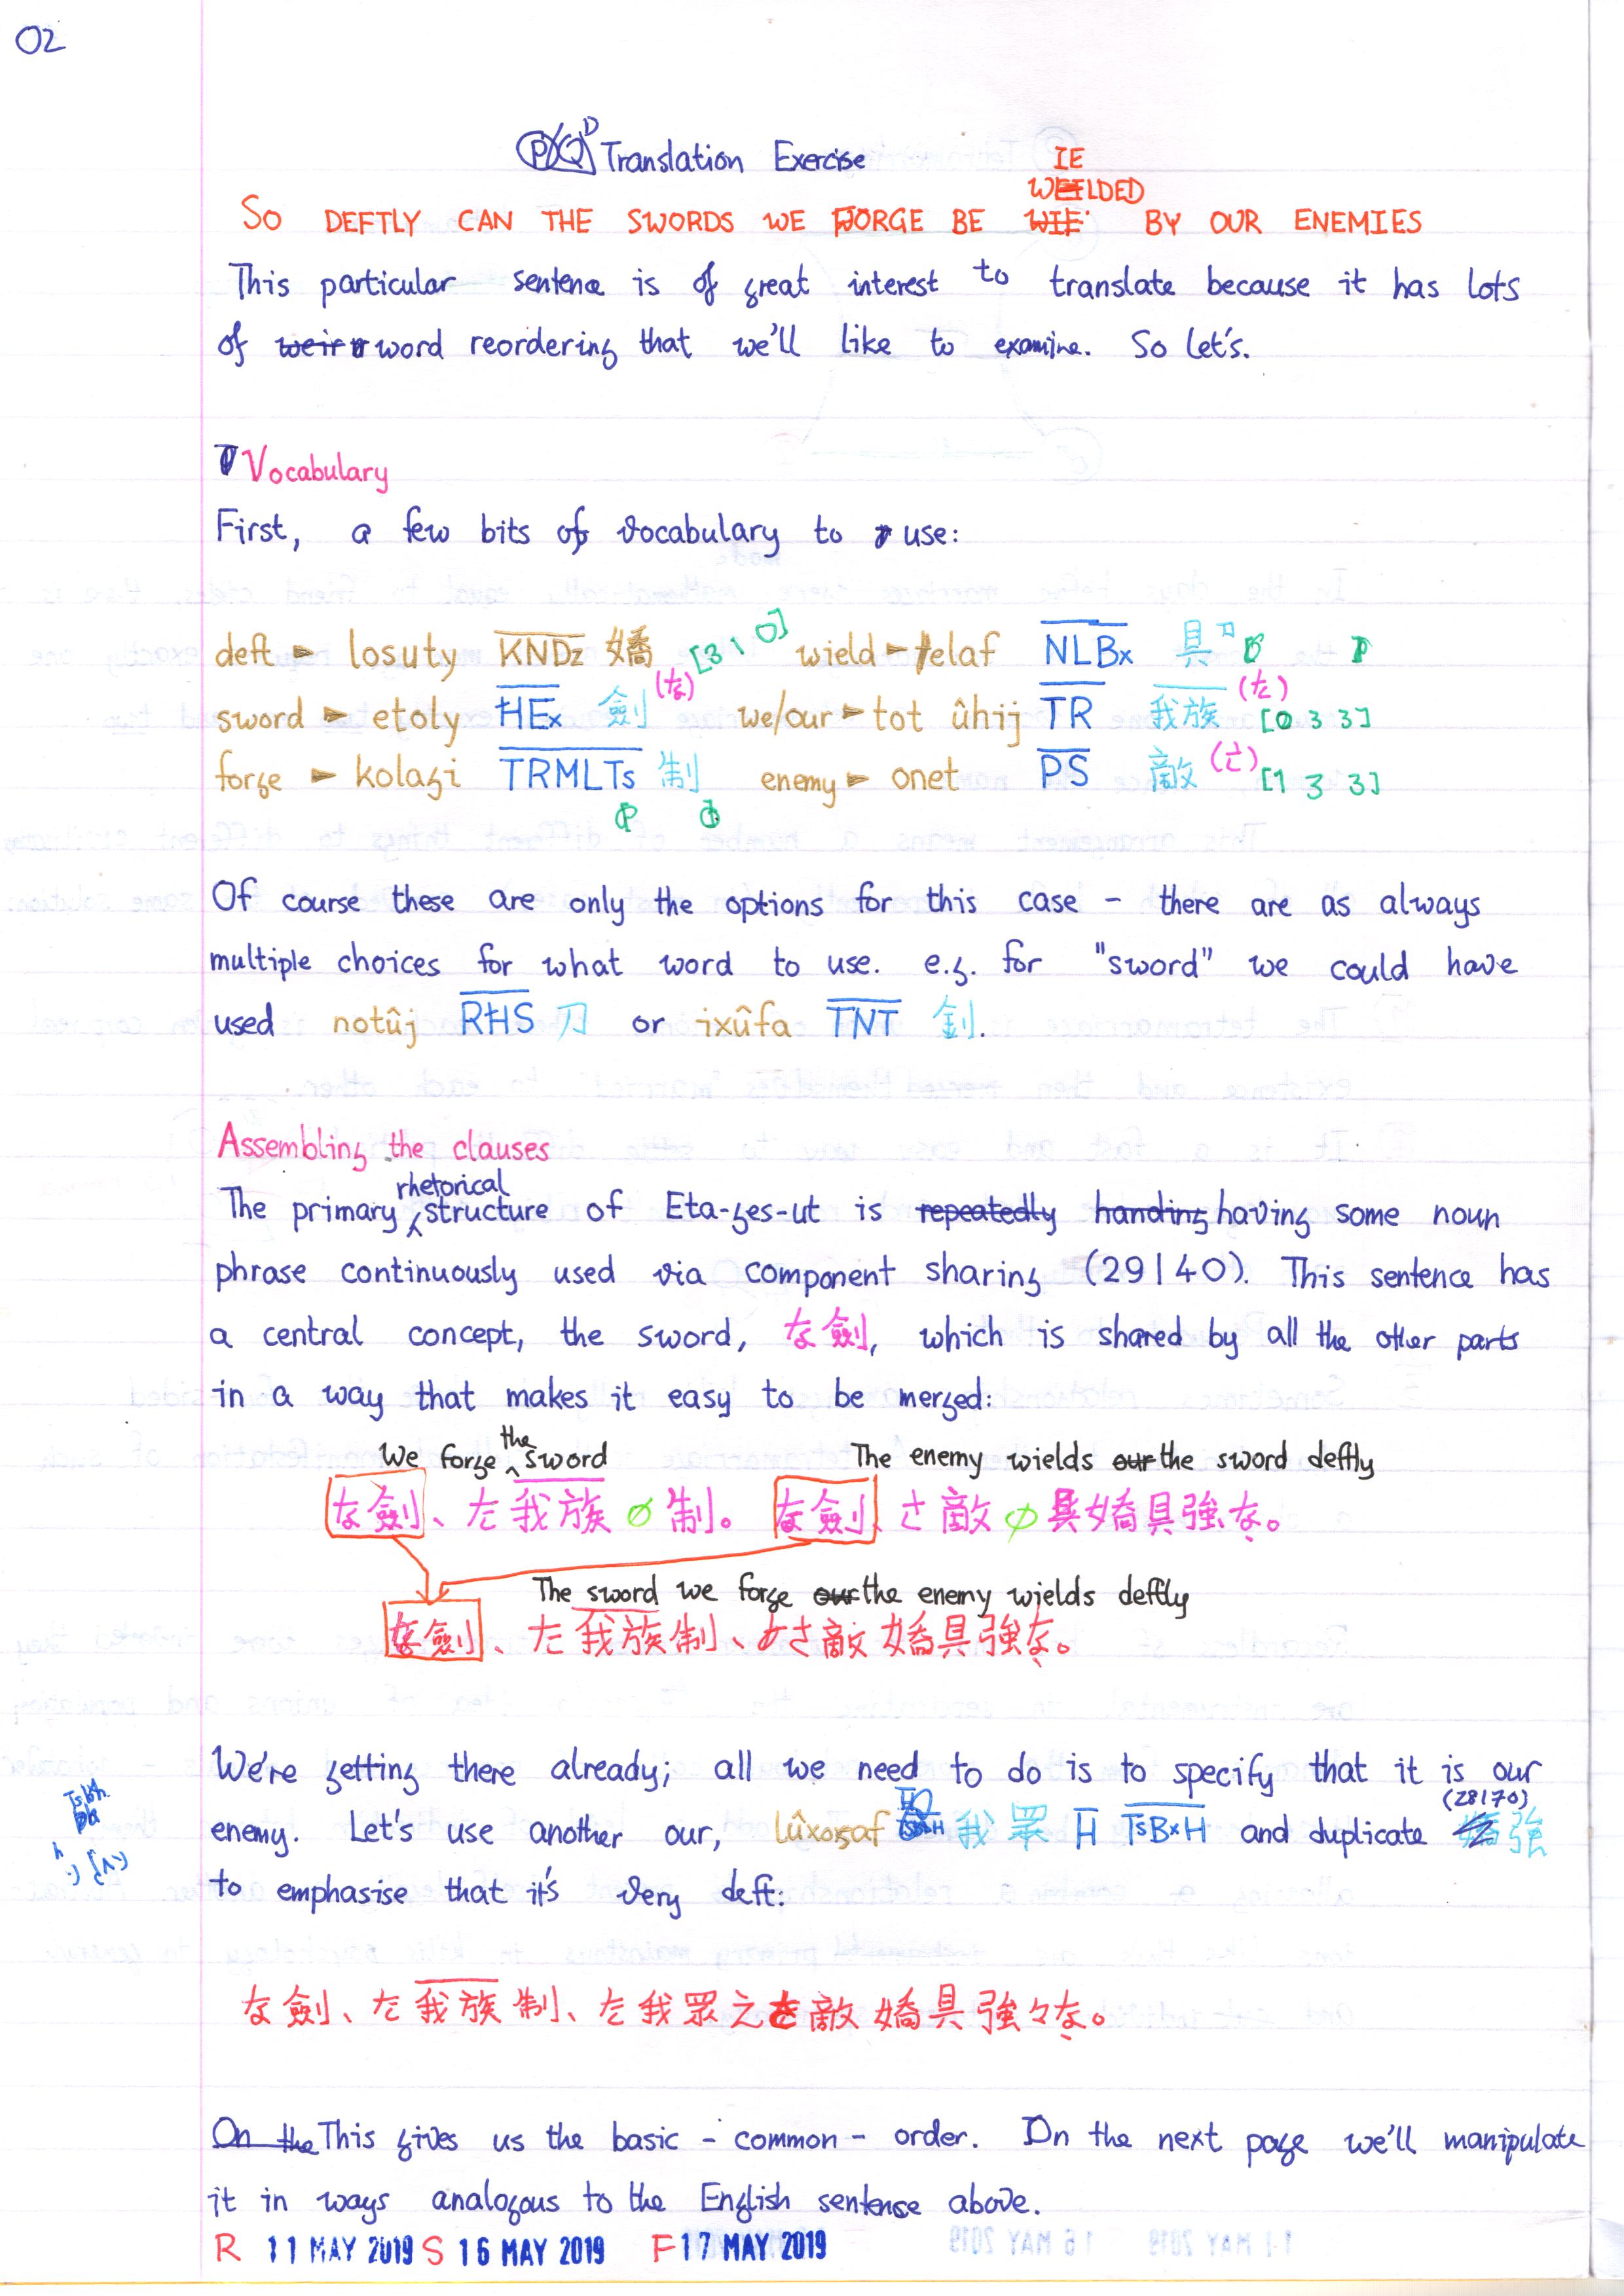 02
Translation Exercise
IE
WIELDED
SO DEFTLY CAN THE SWORDS WE FORGE BE WIE BY OUR ENEMIES
This particular sentence is of great interest to translate because it has lots
of weir word reordering that we'll like to examine. So let's.
Vocabulary
First, a few bits of vocabulary to use:
deft ► losuty KNDz 嬌 [3 1 0] wield ► elaf NLBx 具
sword ► etoly HEx 劍 (な) we/our ► tot ûhij TR 我族 (左) [0 3 3]
forge ► kolagi TRMLTs 制 enemy ► onet PS 敵 (さ) [1 3 3]
Of course these are only the options for this case - there are as always
multiple choices for what word to use. e.g. for "sword" we could have
used notûj RHS 刀 or ixûfa TNT 釗.
Assembling the clauses
rhetorical
The primary structure of Eta-ges-ut is repeatedly handing having some noun
phrase continuously used via component sharing (29140). This sentence has
a central concept, the sword, な劍, which is shared by all the other parts
in a way that makes it easy to be merged:
We forge the sword The enemy wields our the sword deftly
な劍、左我族∅制。 な劍、さ敵∅具嬌具強な。
The sword we forge our the enemy wields deftly
な劍、左我族制、さ敵嬌具強な。
We're getting there already; all we need to do is to specify that it is our
(28170)
enemy. Let's use another our, lûxogaf 我眾 H TsBxH and duplicate 強
to emphasise that it's very deft:
な劍、左我族制、左我眾之さ敵嬌具強々な。
On the This gives us the basic - common - order. On the next page we'll manipulate
it in ways analogous to the English sentence above.
R 11 MAY 2019 S 16 MAY 2019 F 17 MAY 2019